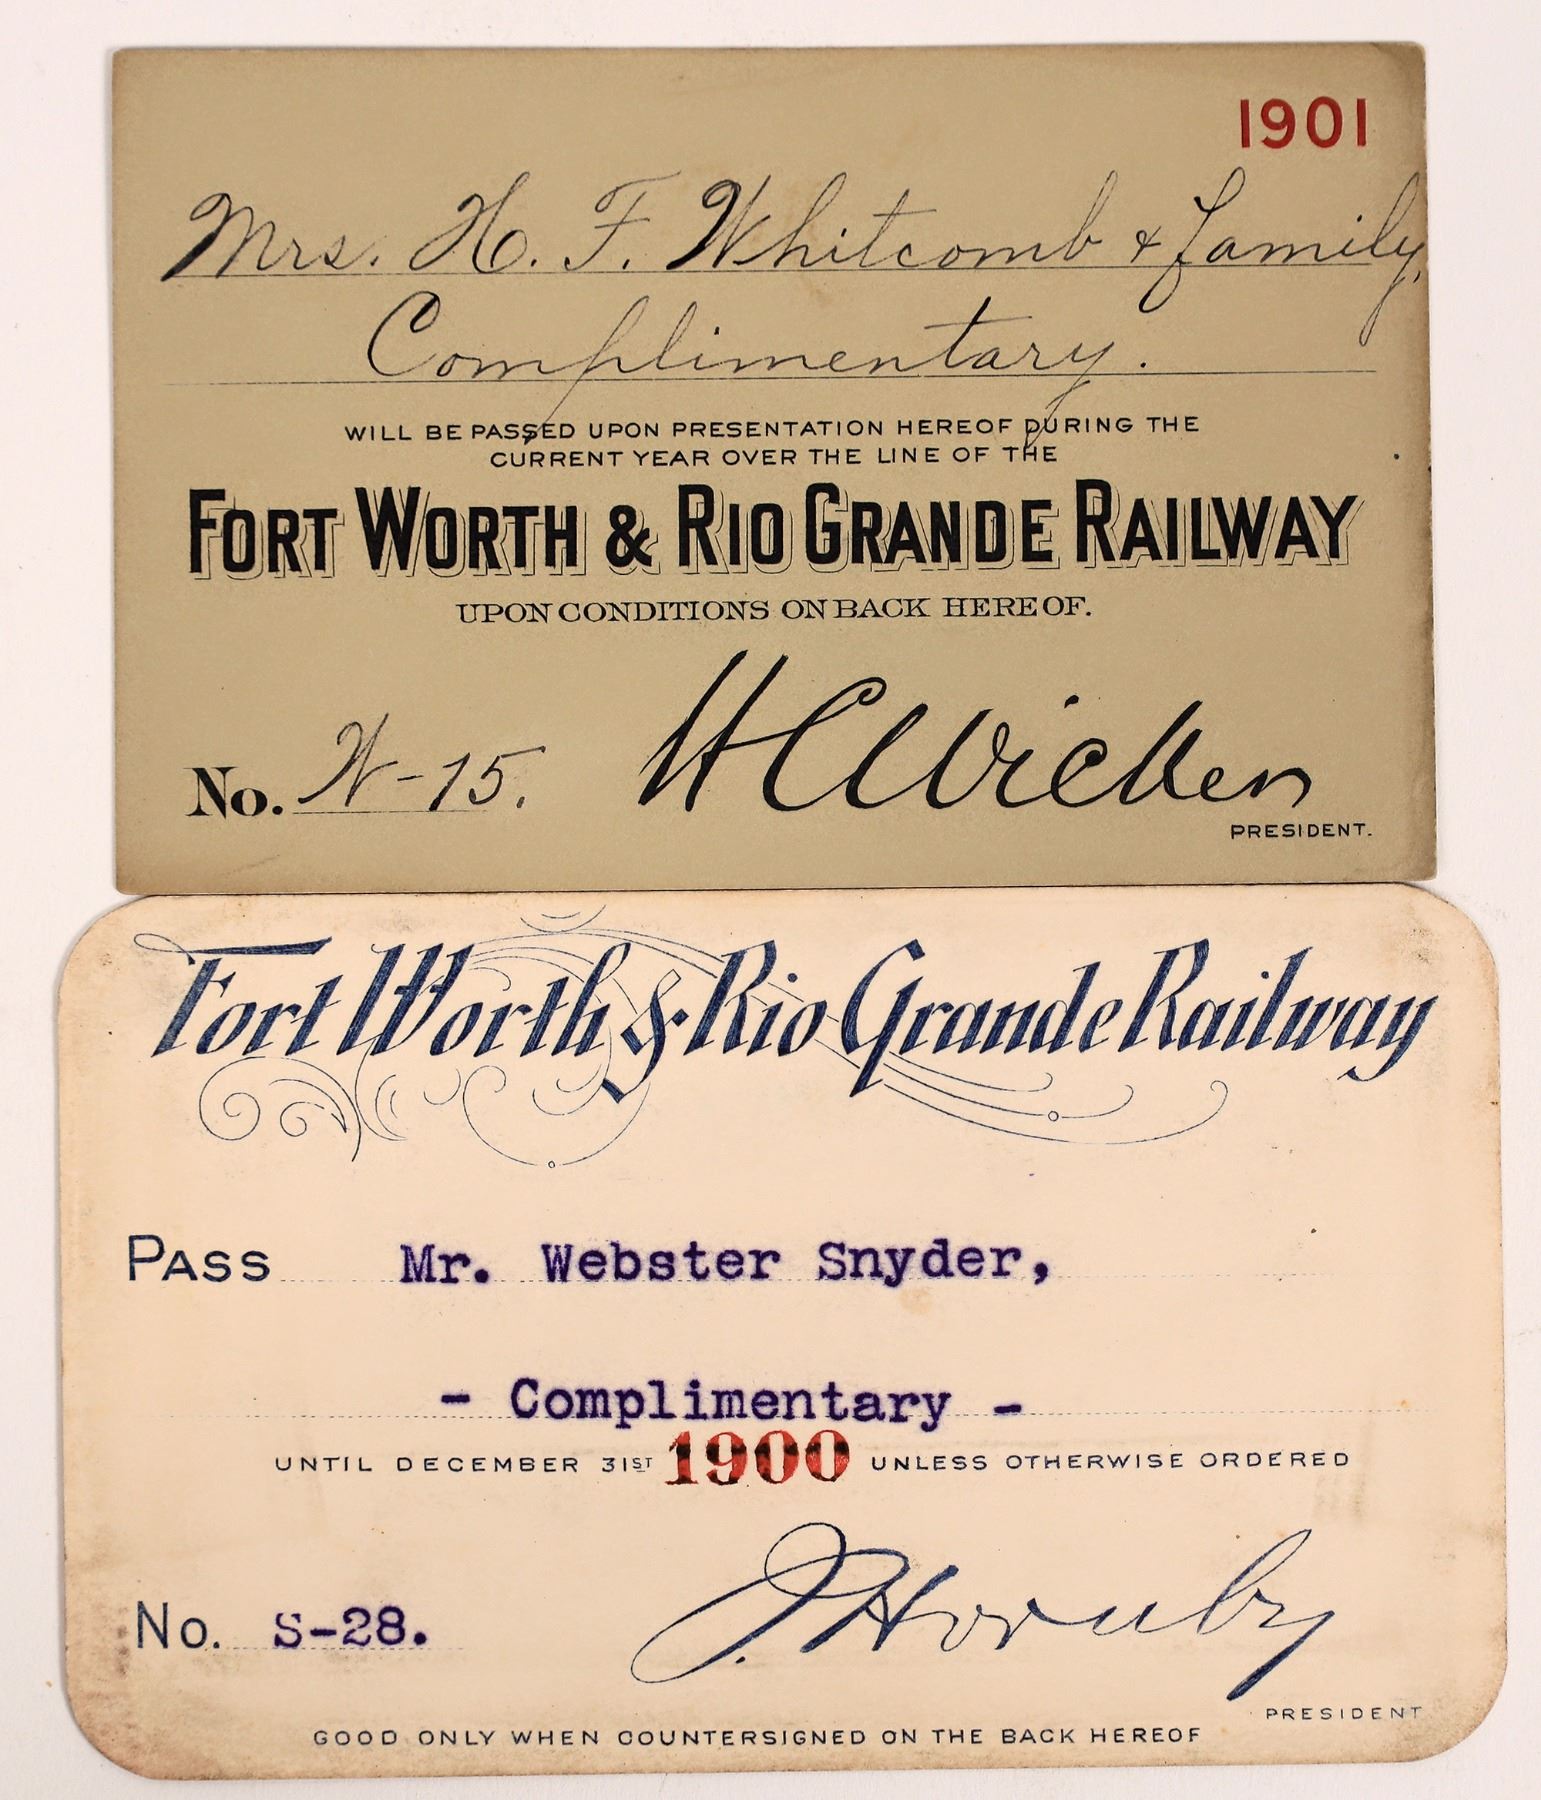 1901
Mrs. H. F. Whitcomb & family,
Complimentary.
WILL BE PASSED UPON PRESENTATION HEREOF DURING THE
CURRENT YEAR OVER THE LINE OF THE
FORT WORTH & RIO GRANDE RAILWAY
UPON CONDITIONS ON BACK HEREOF.
No. W-15.
PRESIDENT.
Fort Worth & Rio Grande Railway
PASS Mr. Webster Snyder,
- Complimentary -
UNTIL DECEMBER 31ST 1900 UNLESS OTHERWISE ORDERED
No. S-28. J. Hornby
PRESIDENT
GOOD ONLY WHEN COUNTERSIGNED ON THE BACK HEREOF